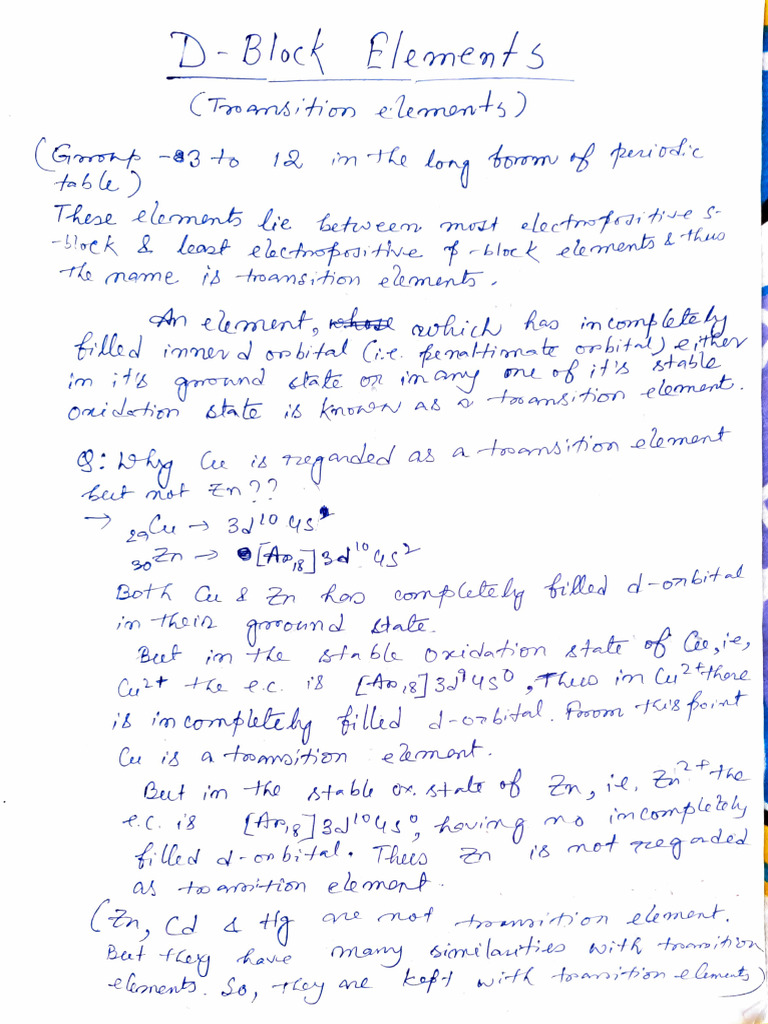 D-Block Elements
(Transition elements)
(Group -3 to 12 in the long form of periodic
table)
These elements lie between most electropositive s-
-block & least electropositive p-block elements & thus
the name is transition elements.
An element, whose which has incompletely
filled inner d orbital (i.e. penaltimate orbital) either
in it's ground state or in any one of it's stable
oxidation state is known as a transition element.
Q: Why Cu is regarded as a transition element
but not Zn??
→ ₂₉Cu → 3d¹⁰ 4s¹
₃₀Zn → [Ar₁₈] 3d¹⁰ 4s²
Both Cu & Zn has completely filled d-orbital
in their ground state.
But in the stable oxidation state of Cu, i.e,
Cu²⁺ the e.c. is [Ar₁₈] 3d⁹ 4s⁰, Thus in Cu²⁺ there
is incompletely filled d-orbital. From this point
Cu is a transition element.
But in the stable ox. state of Zn, i.e. Zn²⁺ the
e.c. is [Ar₁₈] 3d¹⁰ 4s⁰, having no incompletely
filled d-orbital. Thus Zn is not regarded
as transition element.
(Zn, Cd & Hg are not transition element.
But they have many similarities with transition
elements. So, they are kept with transition elements)